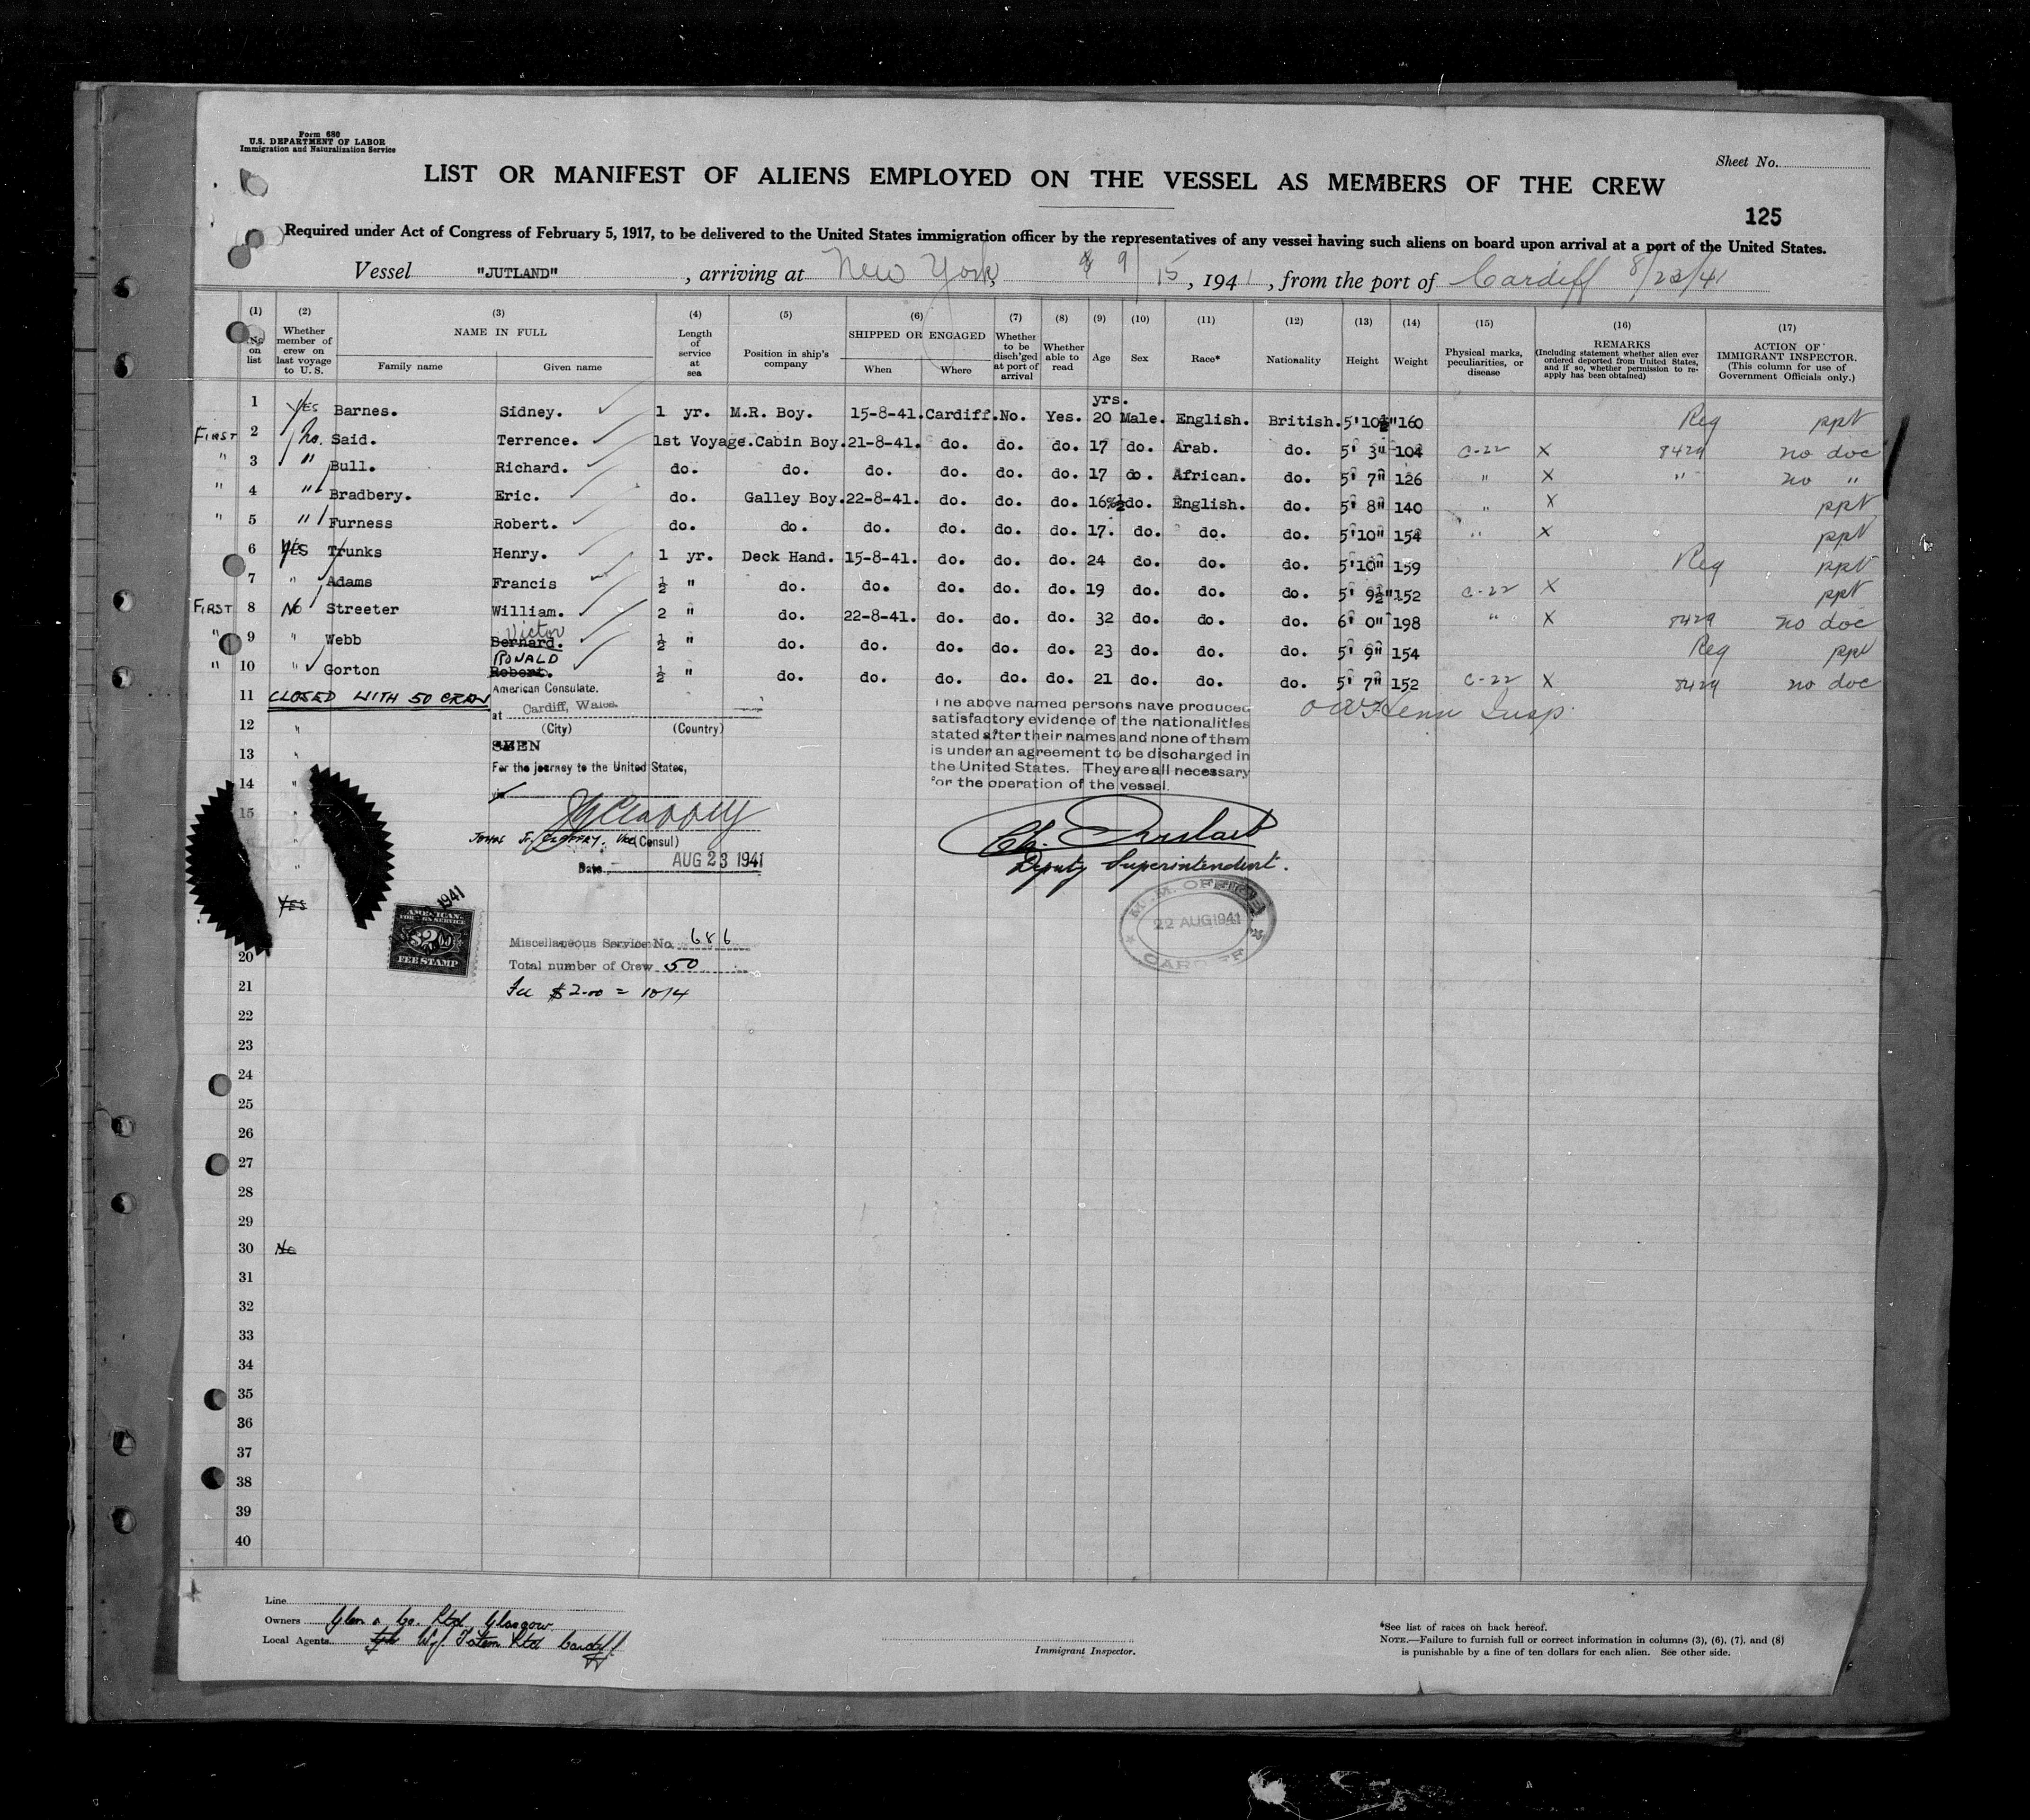 Form 680
U.S. DEPARTMENT OF LABOR
Immigration and Naturalization Service
Sheet No.
LIST OR MANIFEST OF ALIENS EMPLOYED ON THE VESSEL AS MEMBERS OF THE CREW
125
Required under Act of Congress of February 5, 1917, to be delivered to the United States immigration officer by the representatives of any vessel having such aliens on board upon arrival at a port of the United States.
Vessel "JUTLAND", arriving at New York, 9/15, 1941, from the port of Cardiff 8/23/41
(1) (2) (3) (4) (5) (6) (7) (8) (9) (10) (11) (12) (13) (14) (15) (16) (17)
No. on list
Whether member of crew on last voyage to U. S.
NAME IN FULL
Family name Given name
Length of service at sea
Position in ship's company
SHIPPED OR ENGAGED
When Where
Whether to be disch'ged at port of arrival
Whether able to read
Age Sex Race* Nationality Height Weight
Physical marks, peculiarities, or disease
REMARKS
(Including statement whether alien ever ordered deported from United States, and if so, whether permission to re-apply has been obtained)
ACTION OF IMMIGRANT INSPECTOR.
(This column for use of Government Officials only.)
yrs.
1 YES Barnes. Sidney. 1 yr. M.R. Boy. 15-8-41. Cardiff. No. Yes. 20 Male. English. British. 5'10½" 160 Reg ppt
FIRST 2 No. Said. Terrence. 1st Voyage. Cabin Boy. 21-8-41. do. do. do. 17 do. Arab. do. 5' 3" 104 C-22 X 8429 no doc
" 3 " Bull. Richard. do. do. do. do. do. do. 17 do. African. do. 5' 7" 126 " X " no "
" 4 " Bradbery. Eric. do. Galley Boy. 22-8-41. do. do. do. 16½ do. English. do. 5' 8" 140 " X ppt
" 5 " Furness Robert. do. do. do. do. do. do. 17. do. do. do. 5'10" 154 " X ppt
6 YES Trunks Henry. 1 yr. Deck Hand. 15-8-41. do. do. do. 24 do. do. do. 5'10" 159 Reg ppt
7 " Adams Francis ½ " do. do. do. do. do. 19 do. do. do. 5' 9½" 152 C-22 X ppt
FIRST 8 No Streeter William. 2 " do. 22-8-41. do. do. do. 32 do. do. do. 6' 0" 198 " X 8429 no doc
" 9 " Webb Bernard. Victor ½ " do. do. do. do. do. 23 do. do. do. 5' 9" 154 Reg ppt
" 10 " Gorton Robert. RONALD ½ " do. do. do. do. do. 21 do. do. do. 5' 7" 152 C-22 X 8429 no doc
11 CLOSED WITH 50 CREW
American Consulate.
at Cardiff, Wales.
(City) (Country)
SEEN
For the journey to the United States,
via
(Consul)
Date AUG 23 1941
The above named persons have produced
satisfactory evidence of the nationalities
stated after their names and none of them
is under an agreement to be discharged in
the United States. They are all necessary
for the operation of the vessel.
Insp.
Deputy Superintendent.
M.M. OFFICE
22 AUG 1941
CARDIFF
12 "
13 "
14 "
15 "
"
YES
1941
AMERICAN
FOREIGN SERVICE
$2.00
FEE STAMP
Miscellaneous Service No. 686
Total number of Crew 50
Fee $2.00 = 10/4
20
21
22
23
24
25
26
27
28
29
30 No
31
32
33
34
35
36
37
38
39
40
Line
Owners Glen & Co. Ltd Glasgow
Local Agents W.J. Tatem Ltd Cardiff
Immigrant Inspector.
*See list of races on back hereof.
NOTE.—Failure to furnish full or correct information in columns (3), (6), (7), and (8)
is punishable by a fine of ten dollars for each alien. See other side.